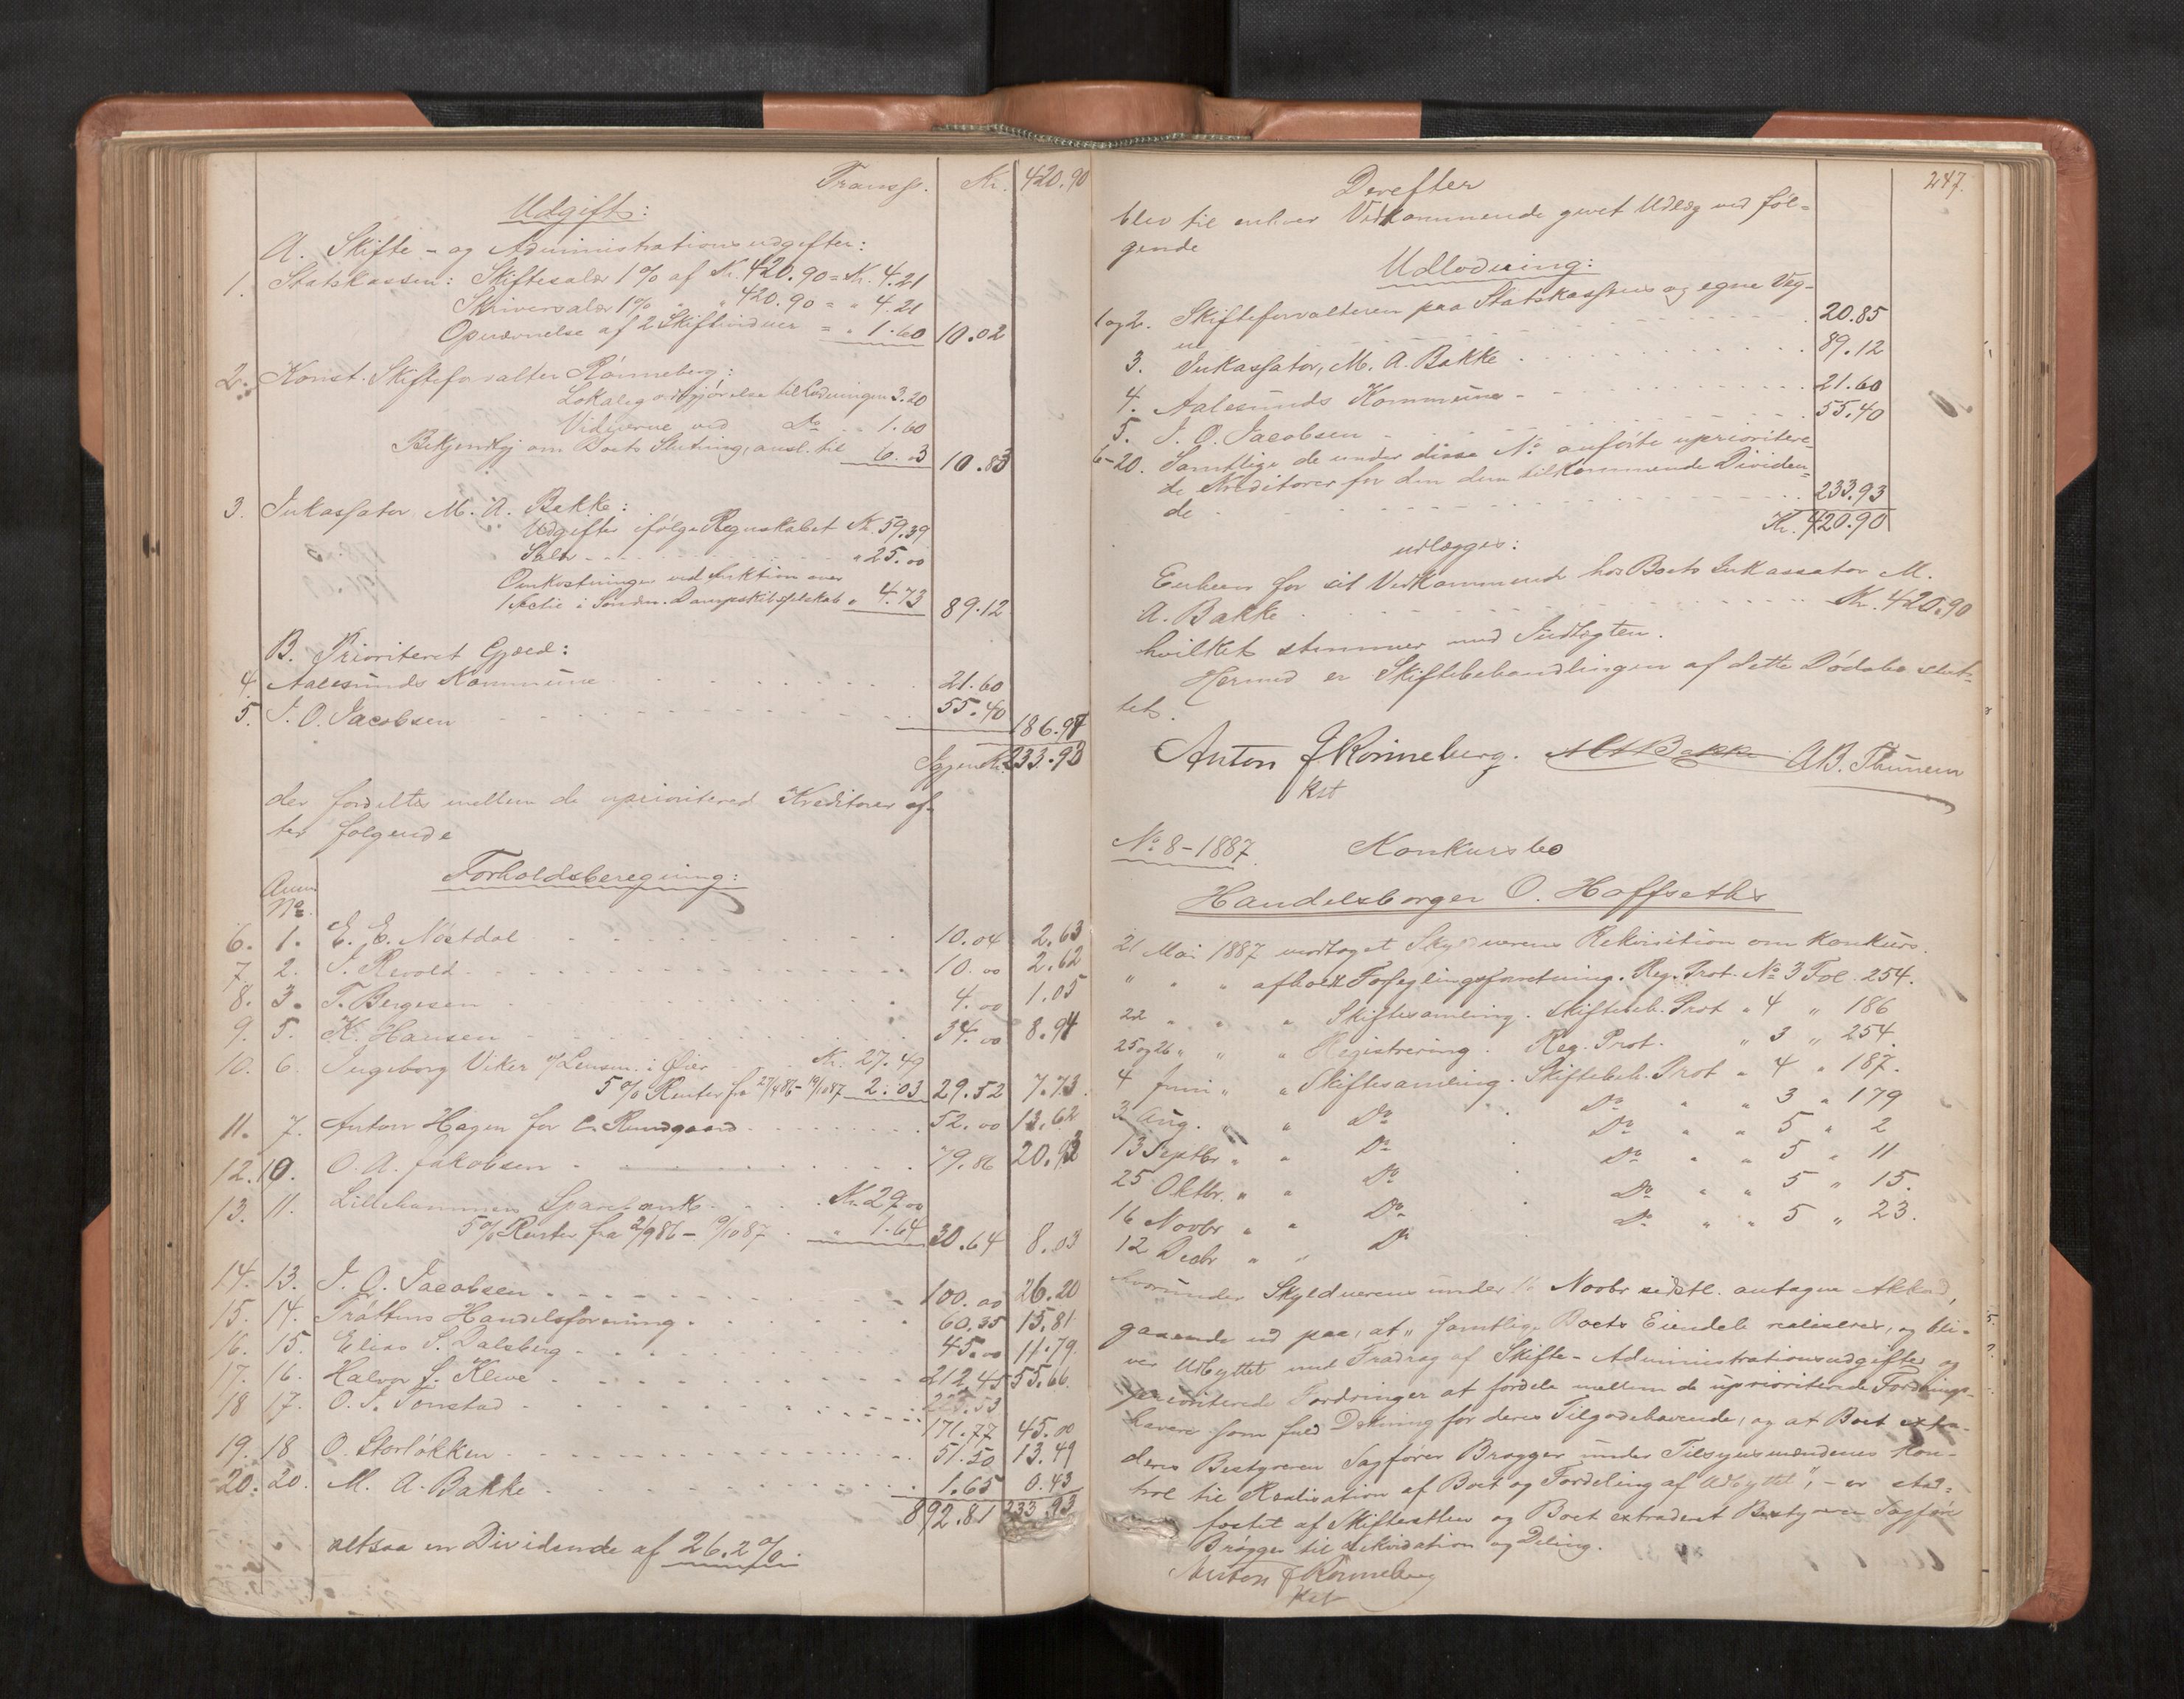 Transp. Kr. 420.90
Udgift:
A. Skifte- og Administrationsudgifter:
1. Statskassen: Skiftesalær 1% af Kr. 420.90 = Kr. 4.21
Skriversalær 1% " " 420.90 = " 4.21
Opnævnelse af 2 Skiftevidner = " 1.60 10.02
2. Konst. Skifteforvalter Rønneberg:
Lokalegodtgjørelse til Lodningen 3.20
Vidnerne ved Do " 1.60
Bekjentg. om Boets Slutning, ansl. til 6.03 10.83
3. Inkassator M. A. Bakke:
Udgifter ifølge Regnskabet Kr. 59.39
Salær " 25.00
Omkostninger ved Auktion over
1 Actie i Søndm. Dampskibsselskab " 4.73 89.12
B. Prioriteret Gjæld:
4. Aalesunds Kommune 21.60
5. J. O. Jacobsen 55.40 186.97
Igjen Kr. 233.93
der fordeltes mellem de uprioriterede Kreditorer ef-
ter følgende
Forholdsberegning:
Anm.
No
6. 1. E. E. Nøstdal 10.04 2.63
7. 2. J. Revold 10.00 2.62
8. 3. T. Bergesen 4.00 1.05
9. 5. K. Hansen 34.00 8.91
10. 6. Ingeborg Viker v/ Lensm. i Øier Kr. 27.49
5% Renter fra 27/4 86 - 19/10 87 2.03 29.52 7.73
11. 7. Anton Hagen for C. Rundgaard 52.00 13.62
12. 10. O. A. Jakobsen 79.86 20.93
13. 11. Lillehammers Sparebank Kr. 29.00
5% Renter fra 2/9 86 - 9/10 87 " 1.64 30.64 8.03
14. 13. J. O. Jacobsen 100.00 26.20
15. 14. Trøttens Handelsforening 60.35 15.81
16. 15. Elias S. Dalsberg 45.00 11.79
17. 16. Halvor L. Kleve 212.45 55.66
18 17. O. J. Tonstad
171.77 45.00
19. 18 O. Storløkken 51.50 13.49
20. 20. M. A. Bakke 1.65 0.43
892.81 233.93
altsaa en Dividende af 26.2%.
247.
Derefter
blev til enhver Vedkommende gjvet Udlæg ved føl-
gende
Udlodning:
1 og 2. Skifteforvalteren paa Statskassens og egne Veg-
ne 20.85
3. Inkassator, M. A. Bakke 89.12
4. Aalesunds Kommune 21.60
5. J. O. Jacobsen 55.40
6-20. Samtlige de under disse No anførte uprioritere-
de Kreditorer for den dem tilkommende Dividen-
de 233.93
Kr. 420.90
udlægges:
Enhver for sit Vedkommende hos Boets Inkassator M.
A. Bakke Kr. 420.90
hvilket stemmer med Indtægten.
Hermed er Skiftebehandlingen af dette Dødsbo slut-
tet.
Anton J Rønneberg. M A Bakke A B. Thunem
kst
No 8 - 1887. Konkursbo
Handelsborger O. Hoffseths
21 Mai 1887 modtaget Skyldnerens Rekvisition om Konkurs.
" " " afholdt Forseglingsforretning. Reg. Prot. No 3 Fol. 254.
22 " " " Skiftesamling. Skiftebeh. Prot " 4 " 186
25 og 26 " " " Registrering. Reg. Prot. " 3 " 254.
4 Juni " " Skiftesamling. Skiftebeh. Prot " 4 " 187.
3 Aug. " " Do Do " " 3 " 179
13 Septbr " " Do Do " " 5 " 2
25 Oktbr. " " Do Do " " 5 " 11
16 Novbr " " Do Do " " 5 " 15.
12 Decbr " " Do Do " " 5 " 23.
hvorunder Skyldnerens under 16 Novbr sidstl. antagne Akkord,
gaaende ud paa, at "samtlige Boets Eiendele realiseres, og bli-
ver Udbyttet med Fradrag af Skifte- Administrationsudgifter og
prioriterede Fordringer at fordele mellem de uprioriterede Fordrings-
havere som fuld Dækning for deres Tilgodehavende, og at Boet extra-
deres Bestyreren Sagfører Brøgger under Tilsynsmændenes Kon-
trol til Realisation af Boet og Fordeling af Udbyttet", - er stad-
fæstet af Skifteretten og Boet extraderet Bestyreren Sagfører
Brøgger til Likvidation og Deling.
Anton J Rønneberg
kst